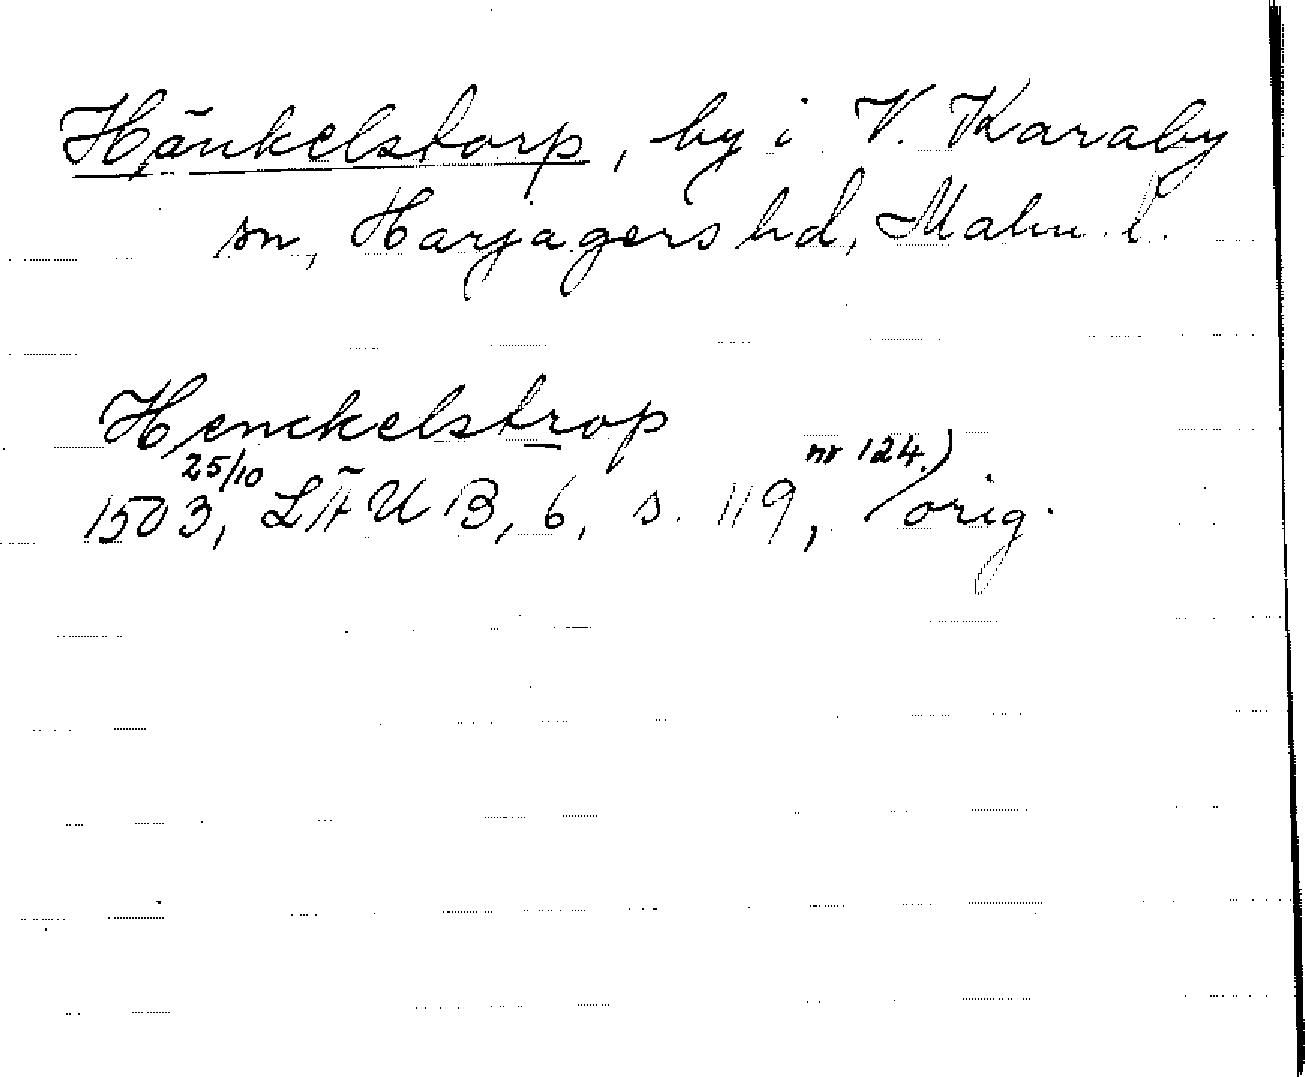 Hänkelstorp, by i V. Karaby
sn, Harjagers hd, Malm. l.
Henckelstrop
25/10 nr 124.)
1503, LÄUB, 6, s. 119, orig.